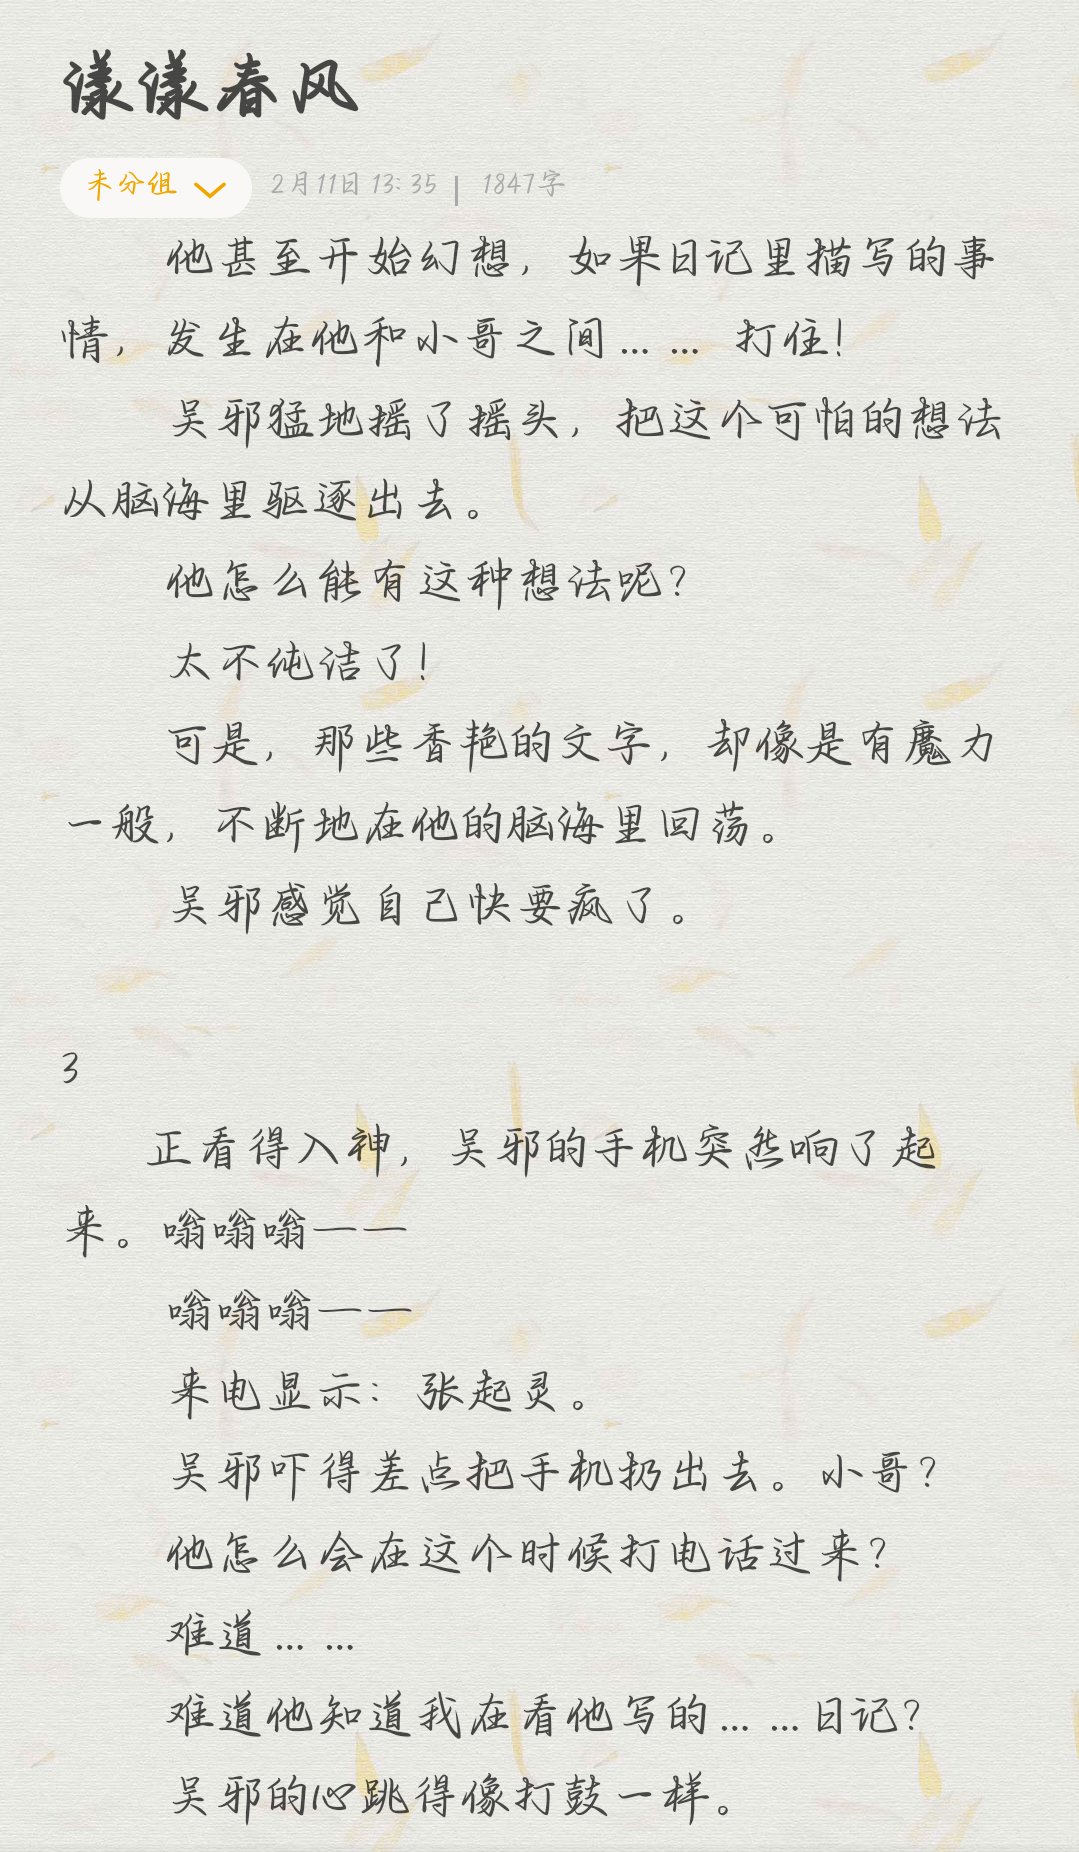 漾漾春风
未分组 2月11日 13:35 | 1847字
他甚至开始幻想，如果日记里描写的事
情，发生在他和小哥之间…… 打住！
吴邪猛地摇了摇头，把这个可怕的想法
从脑海里驱逐出去。
他怎么能有这种想法呢？
太不纯洁了！
可是，那些香艳的文字，却像是有魔力
一般，不断地在他的脑海里回荡。
吴邪感觉自己快要疯了。
3
正看得入神，吴邪的手机突然响了起
来。嗡嗡嗡——
嗡嗡嗡——
来电显示：张起灵。
吴邪吓得差点把手机扔出去。小哥？
他怎么会在这个时候打电话过来？
难道……
难道他知道我在看他写的……日记？
吴邪的心跳得像打鼓一样。